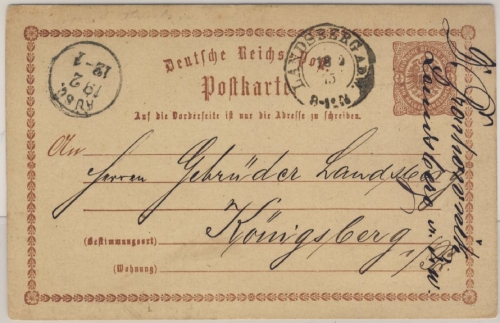 Deutsche Reichs-Post
Postkarte
LANDSBERG A.W.
8 2
75
8-12.M
AUSG.
19 2
12-1
Auf die Vorderseite ist nur die Adresse zu schreiben.
An
Herren Gebrüder Landsber
(Bestimmungsort) Königsberg
(Wohnung) i/Pr
Landsberg